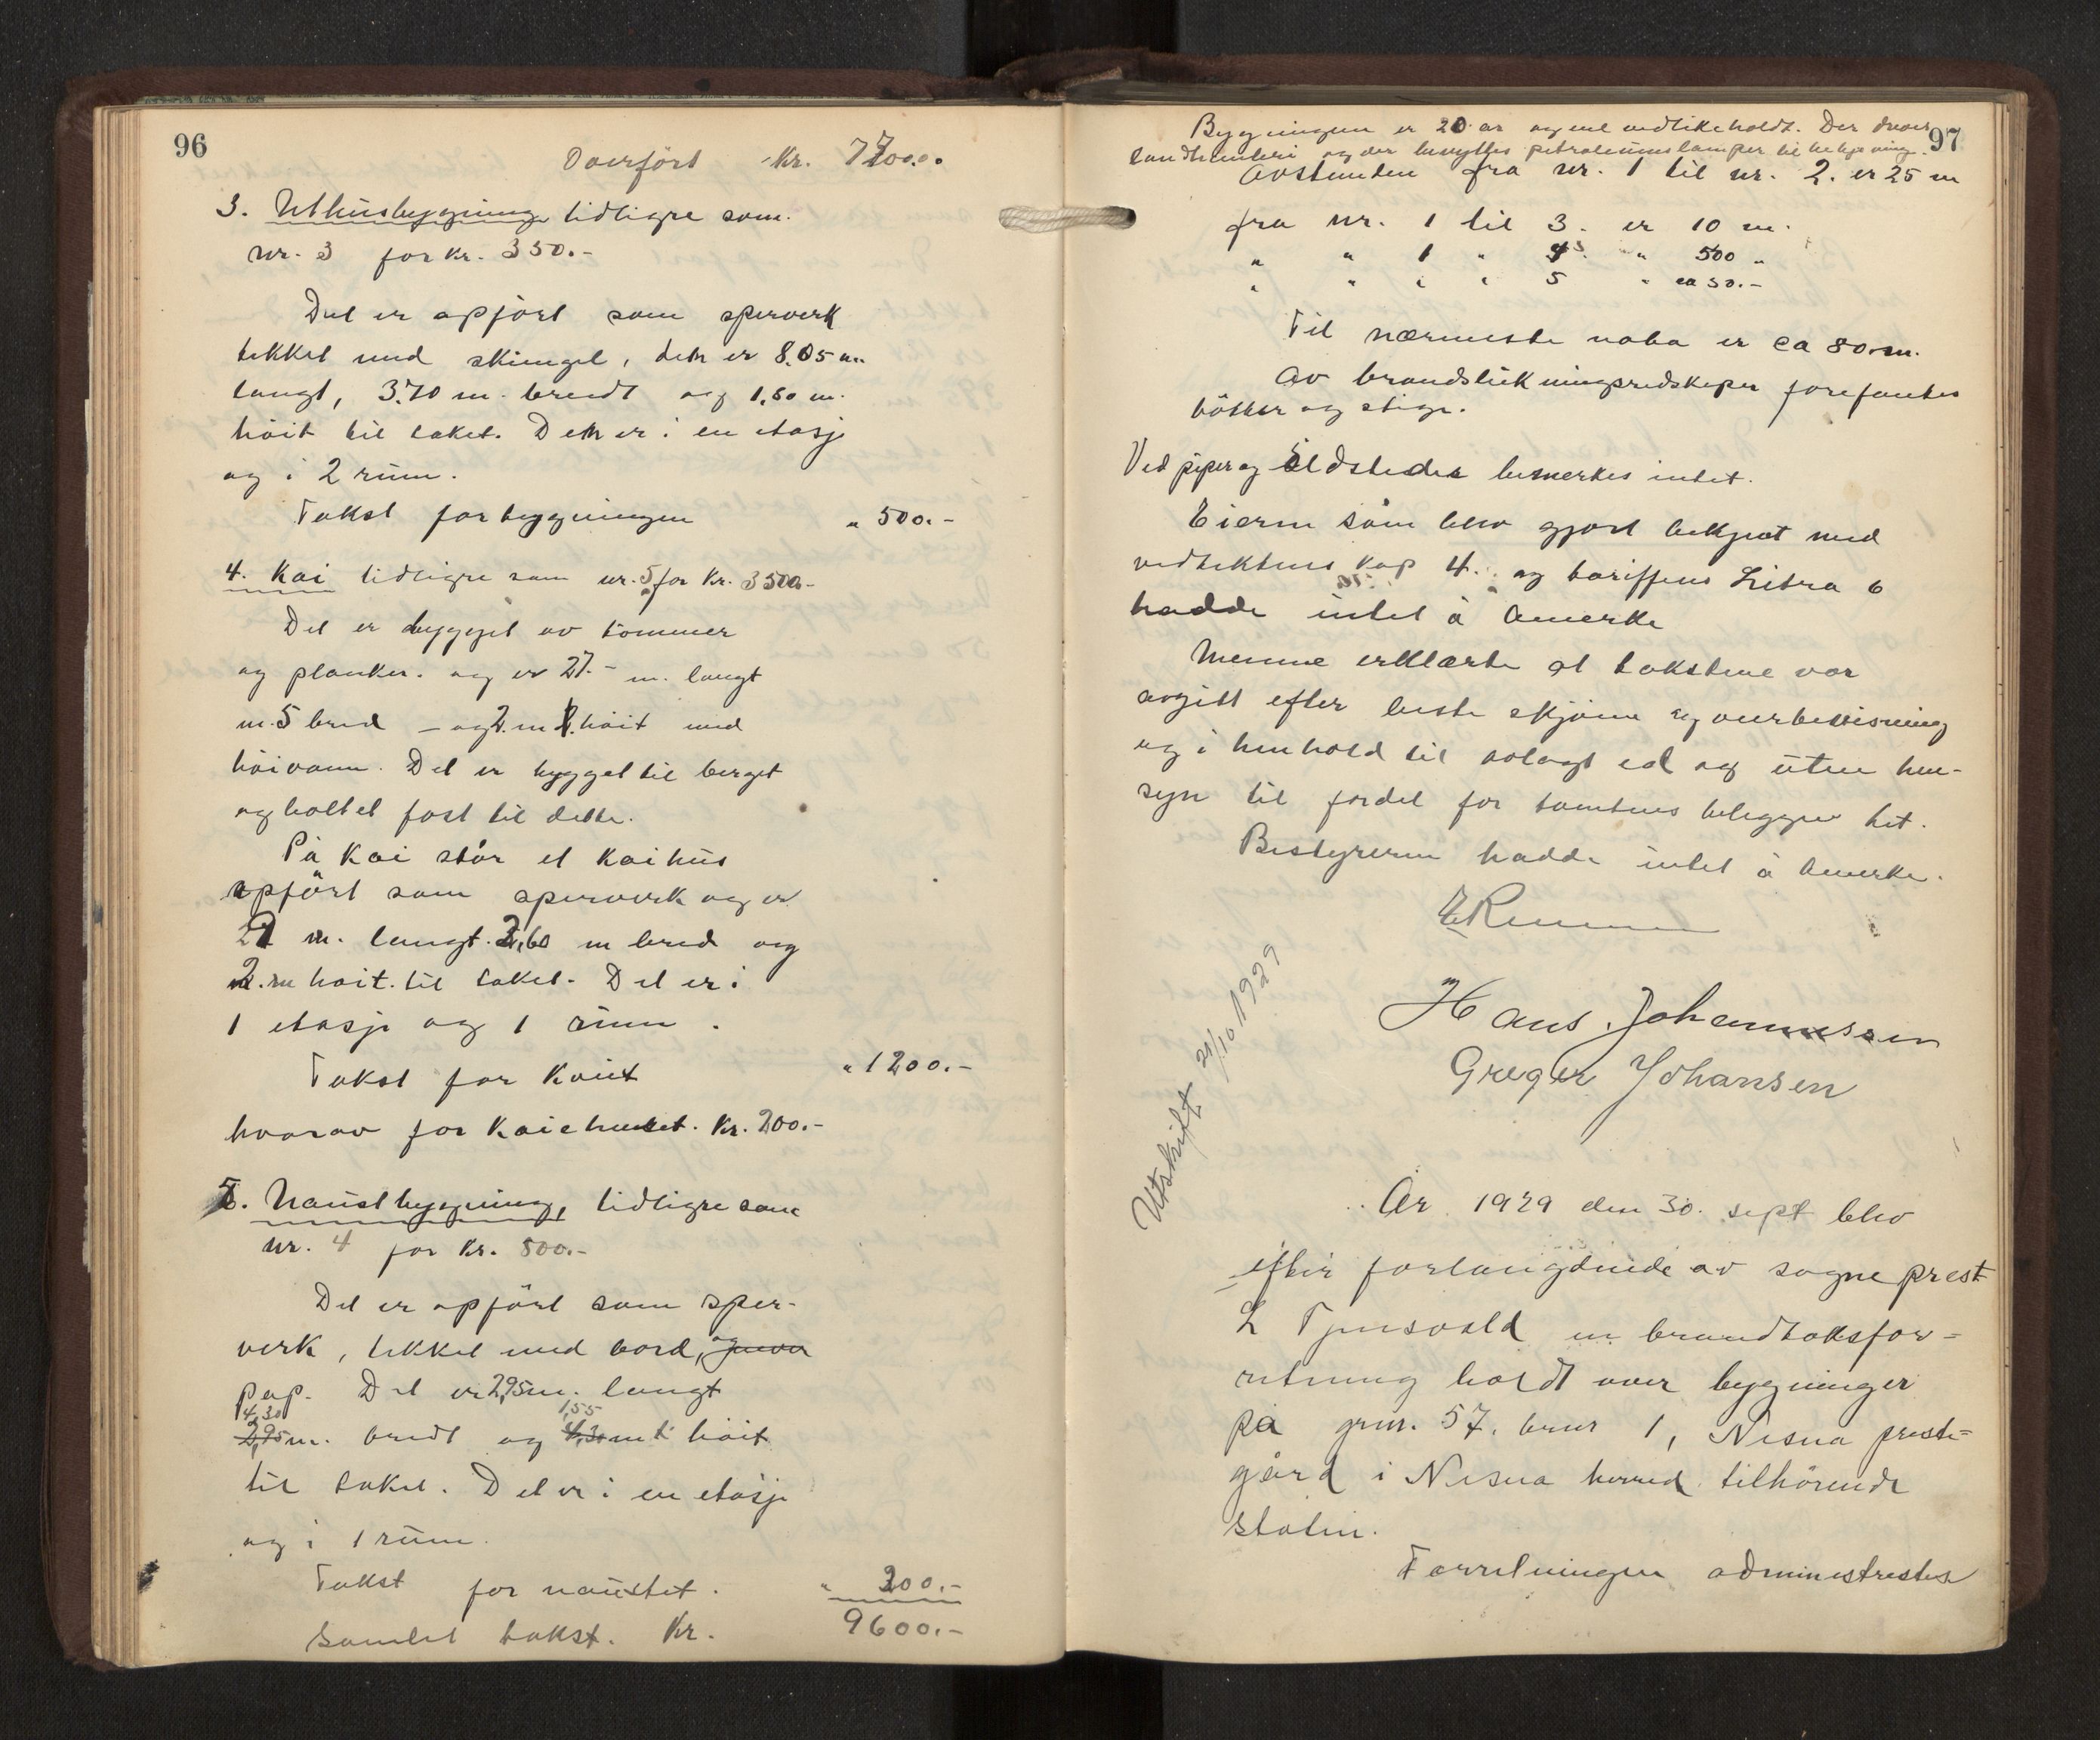 96
Overført Kr. 7700.00
3. Uthusbygning tidligre som
nr. 3 for kr. 350.-
Det er opført som sperverk
tekket med skingel, den er 8.05 m
langt, 3.70 m. bredt og 1,80 m.
höit til taket. Den er i en etasje
og i 2 rüm.
Takst for bygningen " 500.-
4. Kai tidligre som nr. 5 for Kr. 3500.-
Det er bygget av tömmer
og planker. og er 27.- m. langt
m. 5 bred - og 2. m höit med
höivann. Det er bygget til berget
og boltet fast til dette.
På Kai står et Kaihüs
opfört som sperverk og er
m. langt. 2,60 m bred og
2. m höit. til taket. Det er i
1 etasje og 1 rüm.
Takst for Kaiet " 1200.-
hvorav for Kaiehuset. Kr. 200.-
5. Naustbygning, tidligre som
nr. 4 for Kr. 500.-
Det er opfört som sper-
verk, tekket med bord, og
pap. Det er 7,95 m. langt
4,30 1,55
2,95 m. bredt og 4,30 m höit
til taket. Det er i en etasje
og i 1 rüm.
Takst for naüstet. " 200.-
Samlet takst. Kr. 9600.-
97
Bygningen er 20 år og vel vedlikeholdt. Der
og der benyttes petroleumslamper til
Avstanden fra nr. 1 til nr. 2. er 25 m
fra nr. 1 til 3. er 10 m.
" " 1 " 4 " 500 "
" " " " 5 " ca 50.-
Til nærmeste nabo er ca 80 m.
Av brandslukningsredskaper forefantes
bötter og stige.
Ved piper og ildsteder bemerkes intet.
Eieren som blev gjort bekjent med
vedtektens kap 4. og tariffens Litra 6
hadde intet å bemerke
Mennene erklærte at takstene var
avgitt efter beste skjönn og overbevisning
og i henhold til avlagt ed og uten hen-
syn til fordel for tomtens beliggenhet.
Bestyreren hadde intet å bemerke.
Hans Johannessen
Greger Johansen
Utskrift 21/10 1929
År 1929 den 30. sept blev
efter forlangende av sogneprest
L Tjensvold en brandtaksfor=
retning holdt over bygninger
på gnr. 57. bnr 1, Nesna preste=
gård i Nesna herred tilhörende
staten.
Forretningen administrertes